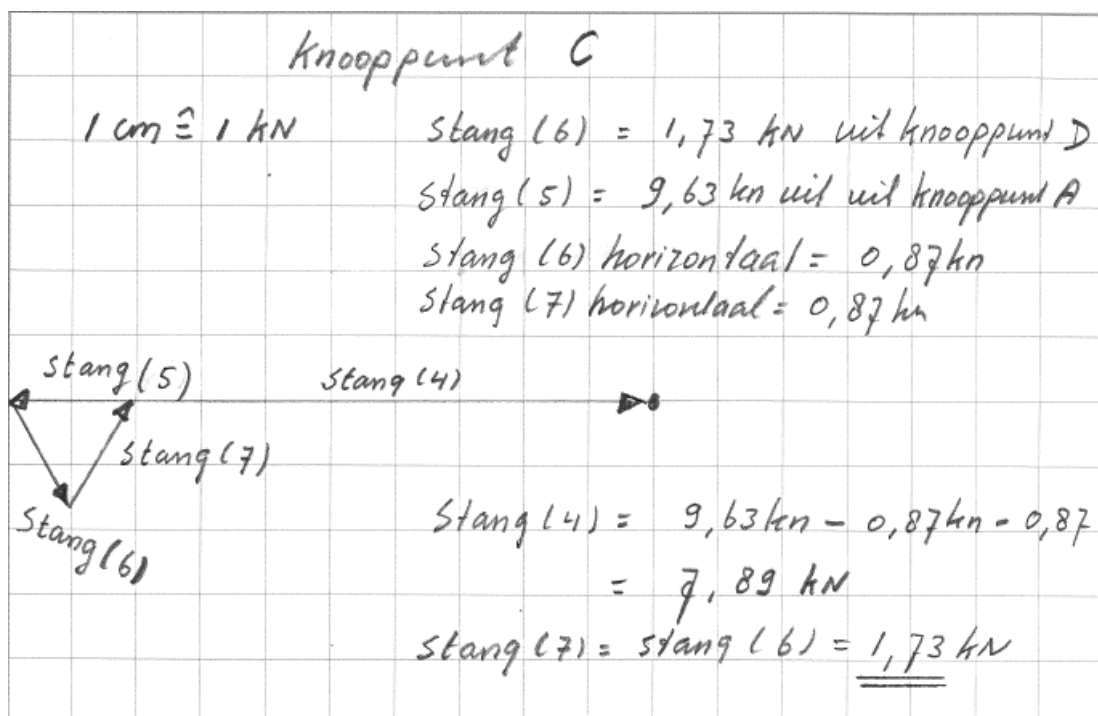 Knooppunt C
1 cm ≙ 1 kN
Stang (6) = 1,73 kN uit knooppunt D
Stang (5) = 9,63 kn uit uit knooppunt A
Stang (6) horizontaal = 0,87 kn
Stang (7) horizontaal = 0,87 kn
Stang (5)
Stang (4)
Stang (7)
Stang (6)
Stang (4) = 9,63 kn - 0,87 kn - 0,87
= 7,89 kN
Stang (7) = stang (6) = 1,73 kN